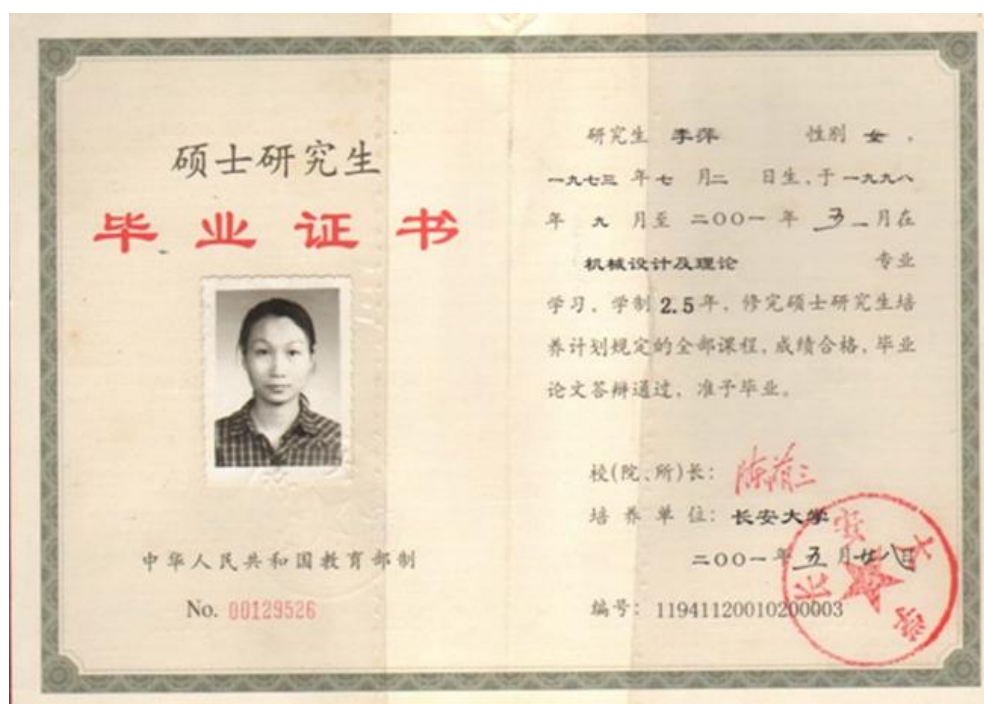 硕士研究生
毕业证书
中华人民共和国教育部制
No. 00129526
研究生 李萍 性别 女，
一九七三 年 七 月 二 日生，于 一九九八
年 九 月至 二〇〇一 年 五 月在
机械设计及理论 专业
学习，学制 2.5 年，修完硕士研究生培
养计划规定的全部课程，成绩合格，毕业
论文答辩通过，准予毕业。
校(院、所)长：陈荫三
培养单位：长安大学
二〇〇一年 五 月 廿八日
编号：11941120010200003
长安大学